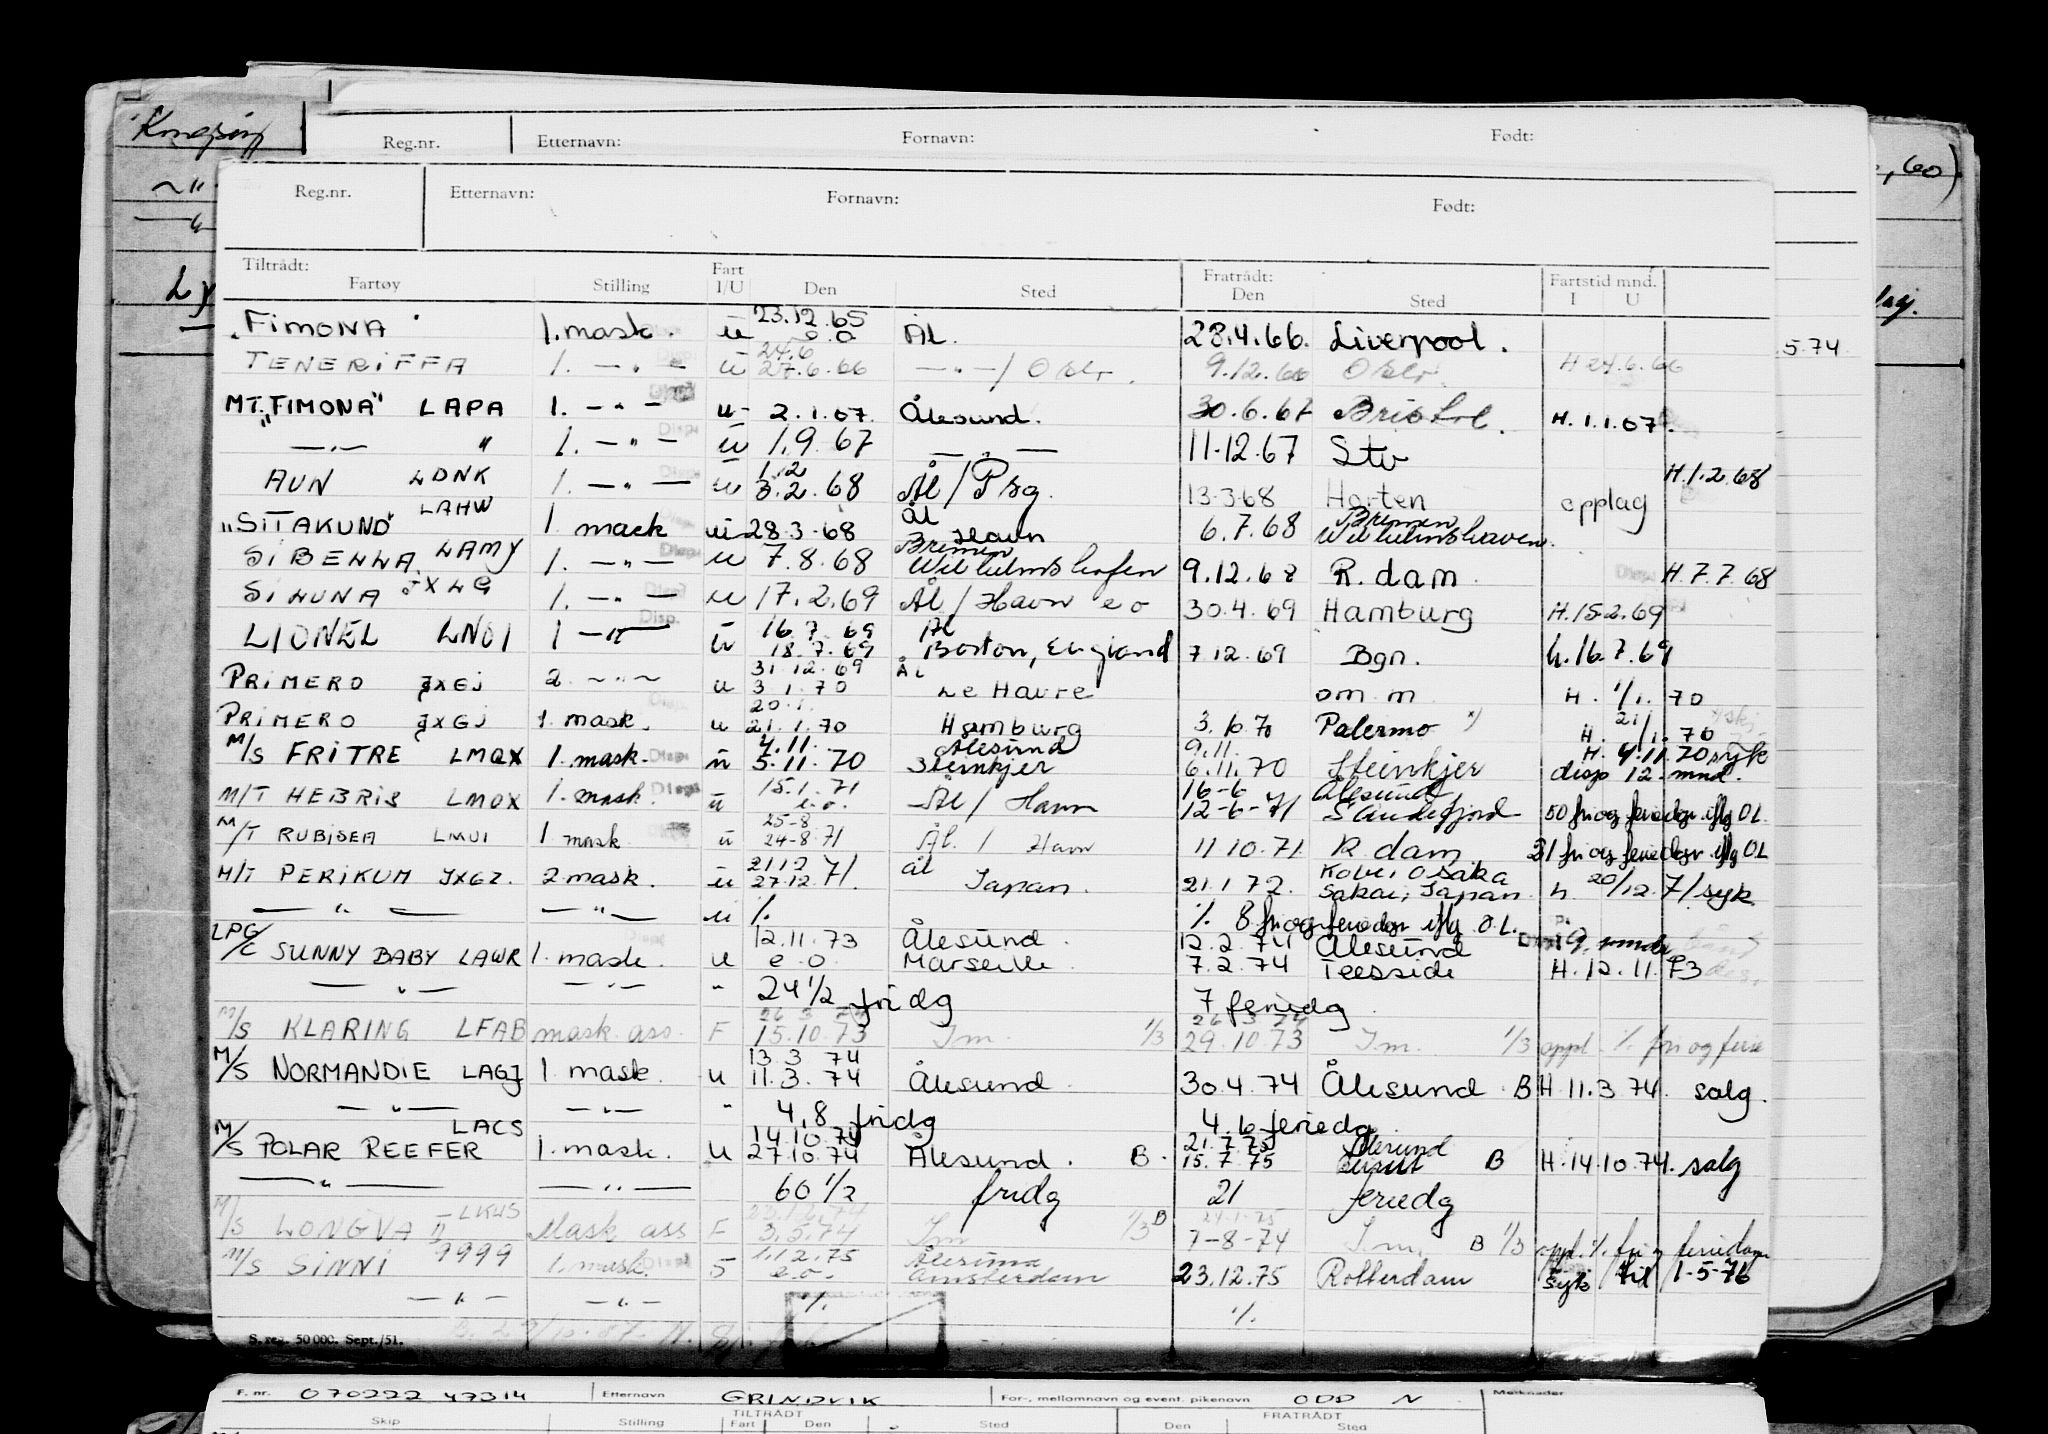 Reg.nr. Etternavn: Fornavn: Født:
, 60)
Reg.nr. Etternavn: Fornavn: Født:
Tiltrådt: Fart Fratrådt: Fartstid mnd.
Fartøy Stilling I/U Den Sted Den Sted I U
23.12.65
"FIMONA" 1. mask. u e.o Ål. 28.4.66. Liverpool.
5.74
24.6
TENERIFFA 1. — " — u 27.6.66 — " — / Oslo. 9.12.66 Oslo. H 24.6.66
MT. "FIMONA" LAPA 1. — " — u 2.1.67. Ålesund. 30.6.67 Bristol. H. 1.1.67.
— " — " 1. — " — u 1.9.67 — " — 11.12.67 Stv
1.2
AUN LDNK 1. — " — u 3.2.68 Ål / Psg. 13.3.68 Horten opplag H.1.2.68
LAHW Ål Bremen
"SITAKUND" 1. mask u 28.3.68 Havn 6.7.68 Wilhelmshaven.
Bremen
SIBELLA LAMY 1. — " — u 7.8.68 Wilhelmshafen 9.12.68 R.dam. H.7.7.68
SILUNA JXLG 1. — " — u 17.2.69 Ål / Havn e o 30.4.69 Hamburg H.15.2.69
16.7.69 Ål
LIONEL LNOI 1 — " — u 18.7.69 Boston, England 7.12.69 Bgn. h.16.7.69
31.12.69 Ål
PRIMERO JXGJ 2. — " — u 3.1.70 Le Havre om.m H. 1/1. 70
20.1.
PRIMERO JXGJ 1. mask. u 21.1.70 Hamburg 3.6.70 Palermo x) H. 21/1. 70
4.11. Ålesund 9.11. H. 4.11.70 syk
M/S FRITRE LMQX 1. mask. u 5.11.70 Steinkjer 6.11.70 Steinkjer disp 12 mnd.
15.1.71 16-6 Ålesund
M/T HEBRIS LMOX 1. mask. u e.o. Ål / Havn 12-6-71 Sandefjord 50 fri og feriedgr iflg OL.
25-8
M/T RUBISEA LMUI 1 mask u 24-8-71 Ål. / Havn 11.10.71. R.dam 31 fri og feriedgr iflg OL
21.12 Ål Kobe, Osaka
M/T PERIKUM JXGZ. 2. mask. u 27.12.71. Japan. 21.1.72. Sakai, Japan. h 20/12.71 syk
— " — — " — u %. %. 8 fri og feriedgr iflg. O.L.
12.11.73 Ålesund. 12.2.74 Ålesund
LPG/C SUNNY BABY LAWR 1. mask. u e.o. Marseille. 7.2.74 Teesside H. 12.11.73
— " — — " — " 24 1/2 fridg 7 feriedg.
26.3.74 26.3.74
M/S KLARING LFAB mask.ass. F 15.10.73 I.m. 1/3 29.10.73 I.m. 1/3 oppl. %. fri og ferie
13.3.74
M/S NORMANDIE LAGJ 1. mask. u 11.3.74 Ålesund. 30.4.74 Ålesund. B H.11.3.74. salg.
— " — — " — " 4,8 fridg 4.6 feriedg
LACS 14.10.74 21.7.75 Ålesund
M/S POLAR REEFER 1. mask. u 27.10.74 Ålesund. B. 15.7.75 B H.14.10.74. salg
— " — — " — 60 1/2 fridg 21 feriedg
M/S LONGVA II LKUS Mask ass F 3.5.74 I m 1/3 B 7-8-74 I.m. B 1/3 oppl. %. fri feriedgr
M/S SINNI 9999 1. mask. 5 1.12.75 Ålesund
e.o. Amsterdam 23.12.75 Rotterdam syk til 1-5-76
— " — — " — %. %.
S. reg. 50 000. Sept./51.
F. nr. 070222 47314 Etternavn GRINDVIK For-, mellomnavn og event. pikenavn ODD N Merknader
TILTRÅDT FRATRÅDT
Skip Stilling Fart Den Sted Den Sted